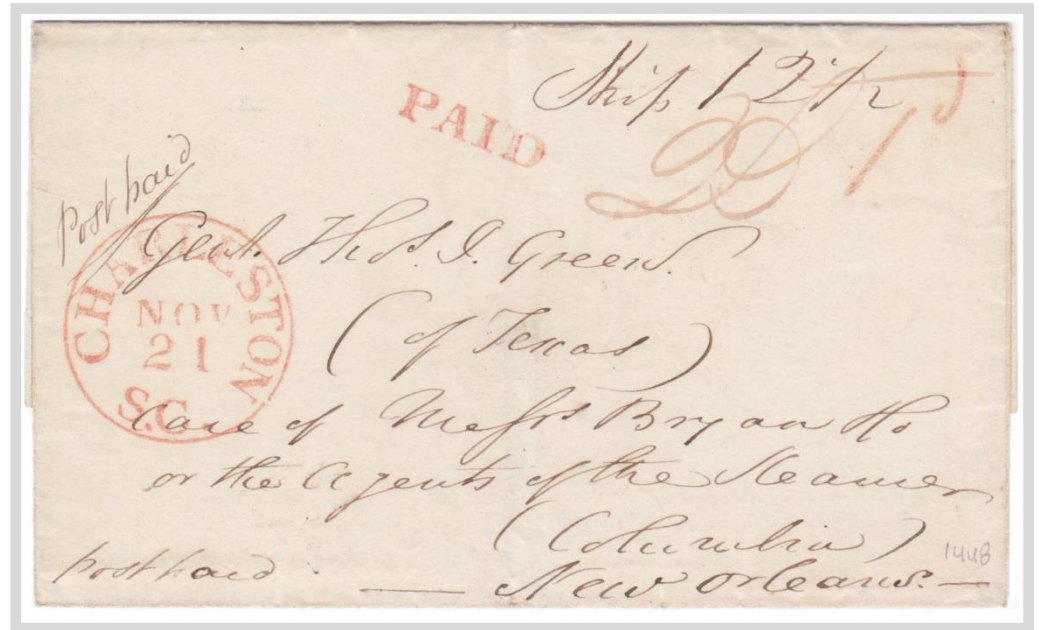 Ship 12½
PAID
Post paid
CHARLESTON
NOV
21
S.C.
Genl. Thos. J. Green.
(of Texas)
Care of Messrs Bryan Ho
or the Agents of the Steamer
(Columbia)
1448
Post paid.
— New Orleans. —